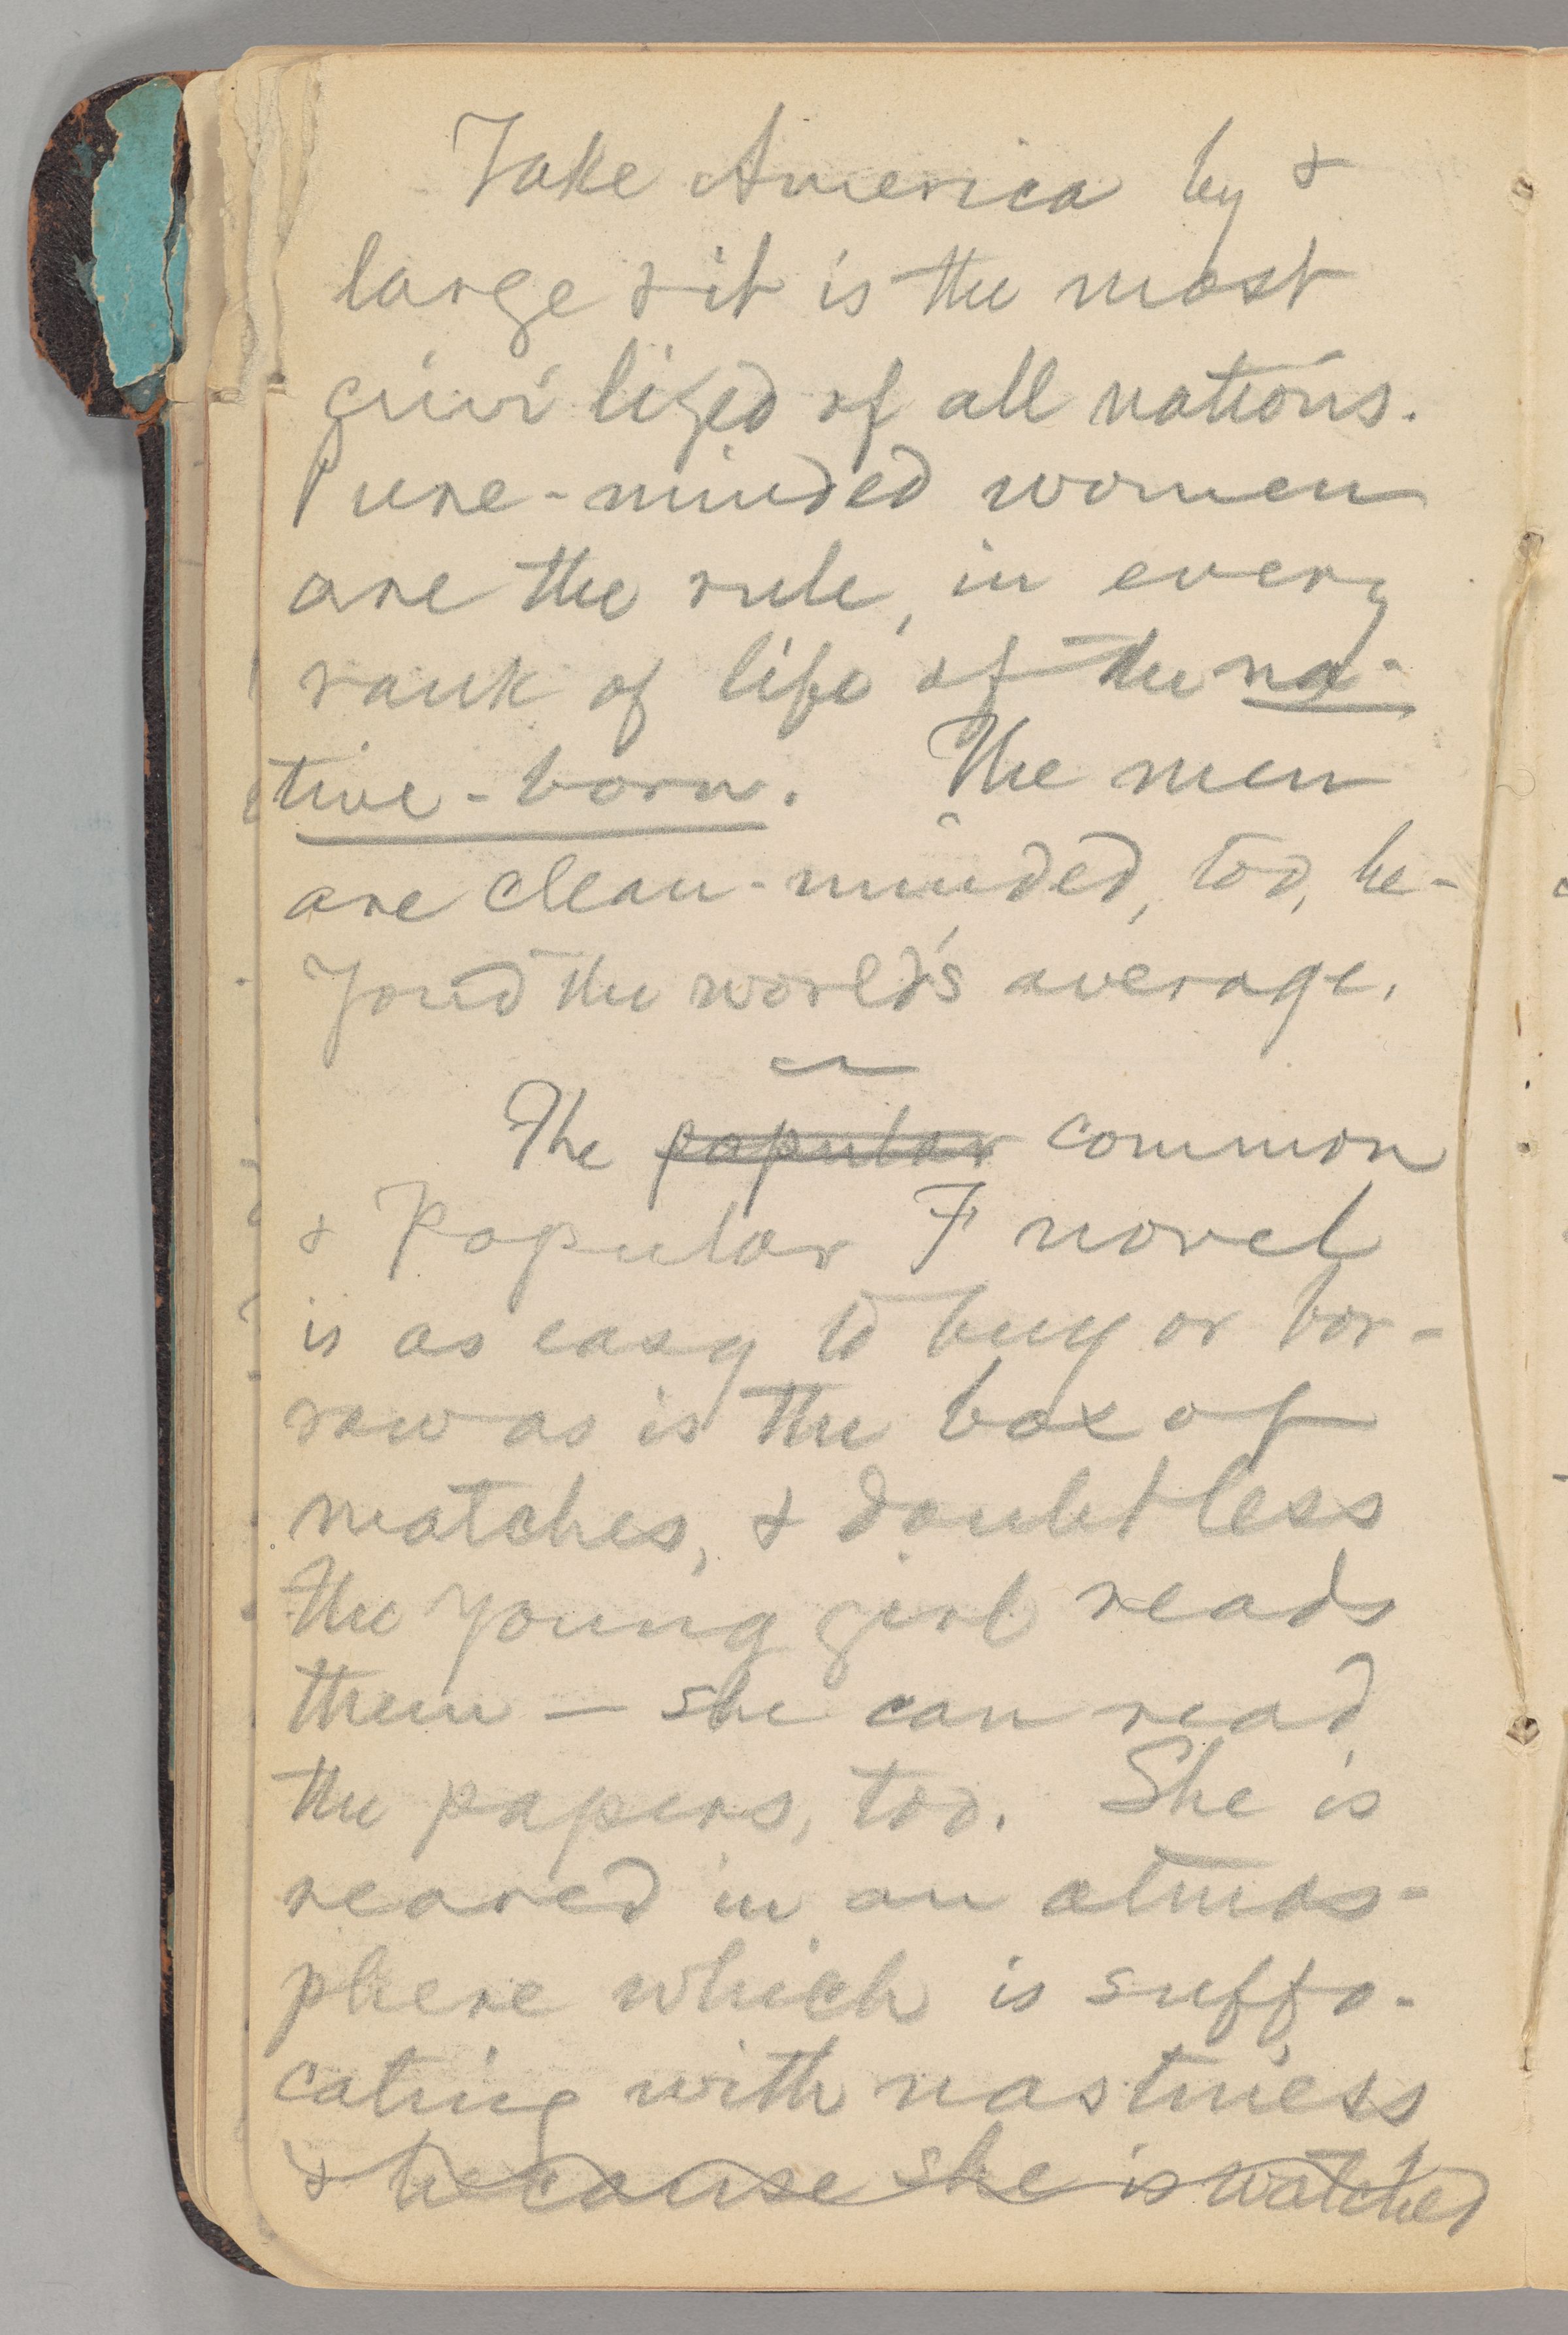 Take America by &
large & it is the most
civilized of all nations.
Pure-minded women
are the rule, in every
rank of life of the na-
tive-born. The men
are clean-minded, too, be-
yond the world's average.
The popular common
& Popular F novel
is as easy to buy or bor-
row as is the box of
matches, & doubtless
the young girl reads
them — she can read
the papers, too. She is
reared in an atmos-
phere which is suffo-
cating with nastiness
& because she is watched